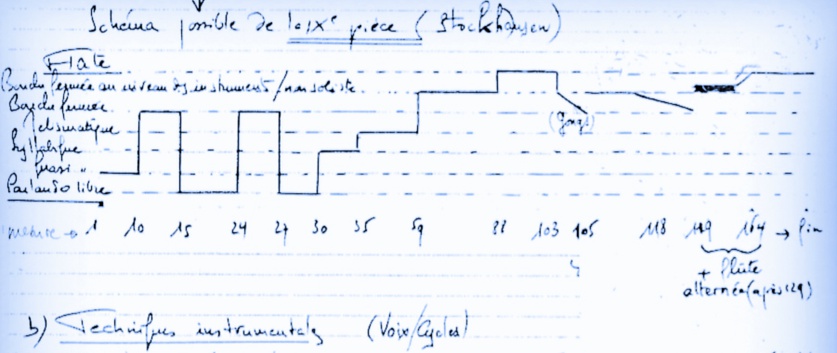 Schéma possible de la IXe pièce (Stockhausen)
Flûte
Bouche fermée au niveau des instruments / non soliste
Bouche fermée
mélismatique
Syllabique
quasi "
Parlando libre
mesure → 1 10 15 24 27 30 35 59 88 103 105 118 119 164 → fin
(Gongs)
+ flûte
alternée (après 129)
b) Techniques instrumentales (Voix/Cycles)